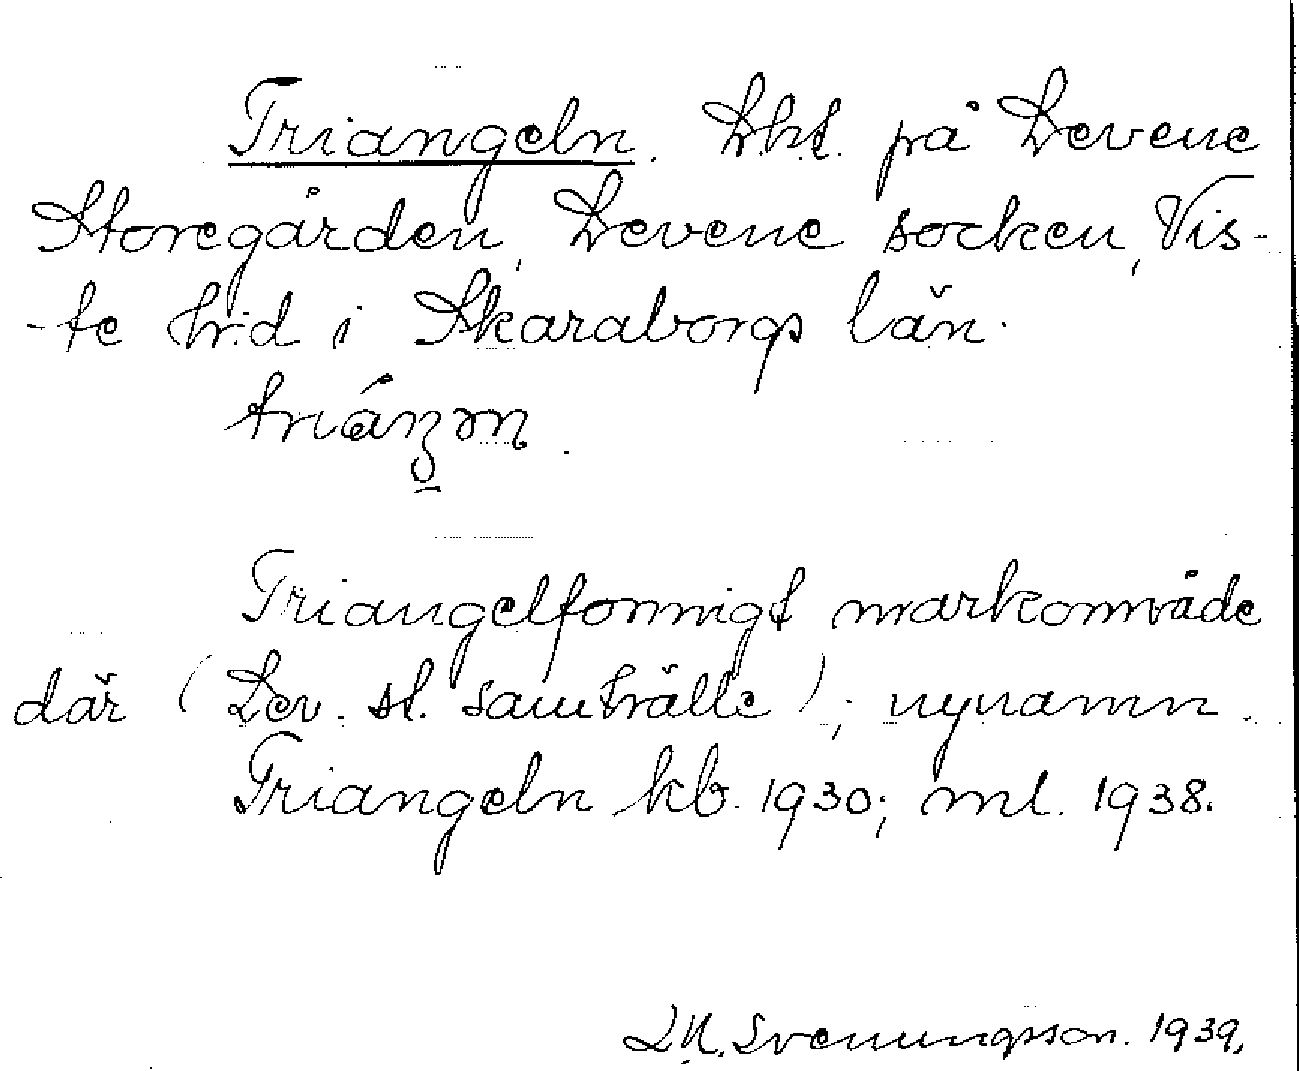 Triangeln. Lht. på Levene
Storegården, Levene socken, Vis-
-te hrd i Skaraborgs län.

Triangelformigt markområde
där (Lev. st. samhälle); nynamn.
Triangeln kb. 1930; ml. 1938.
Svenungsson. 1939.